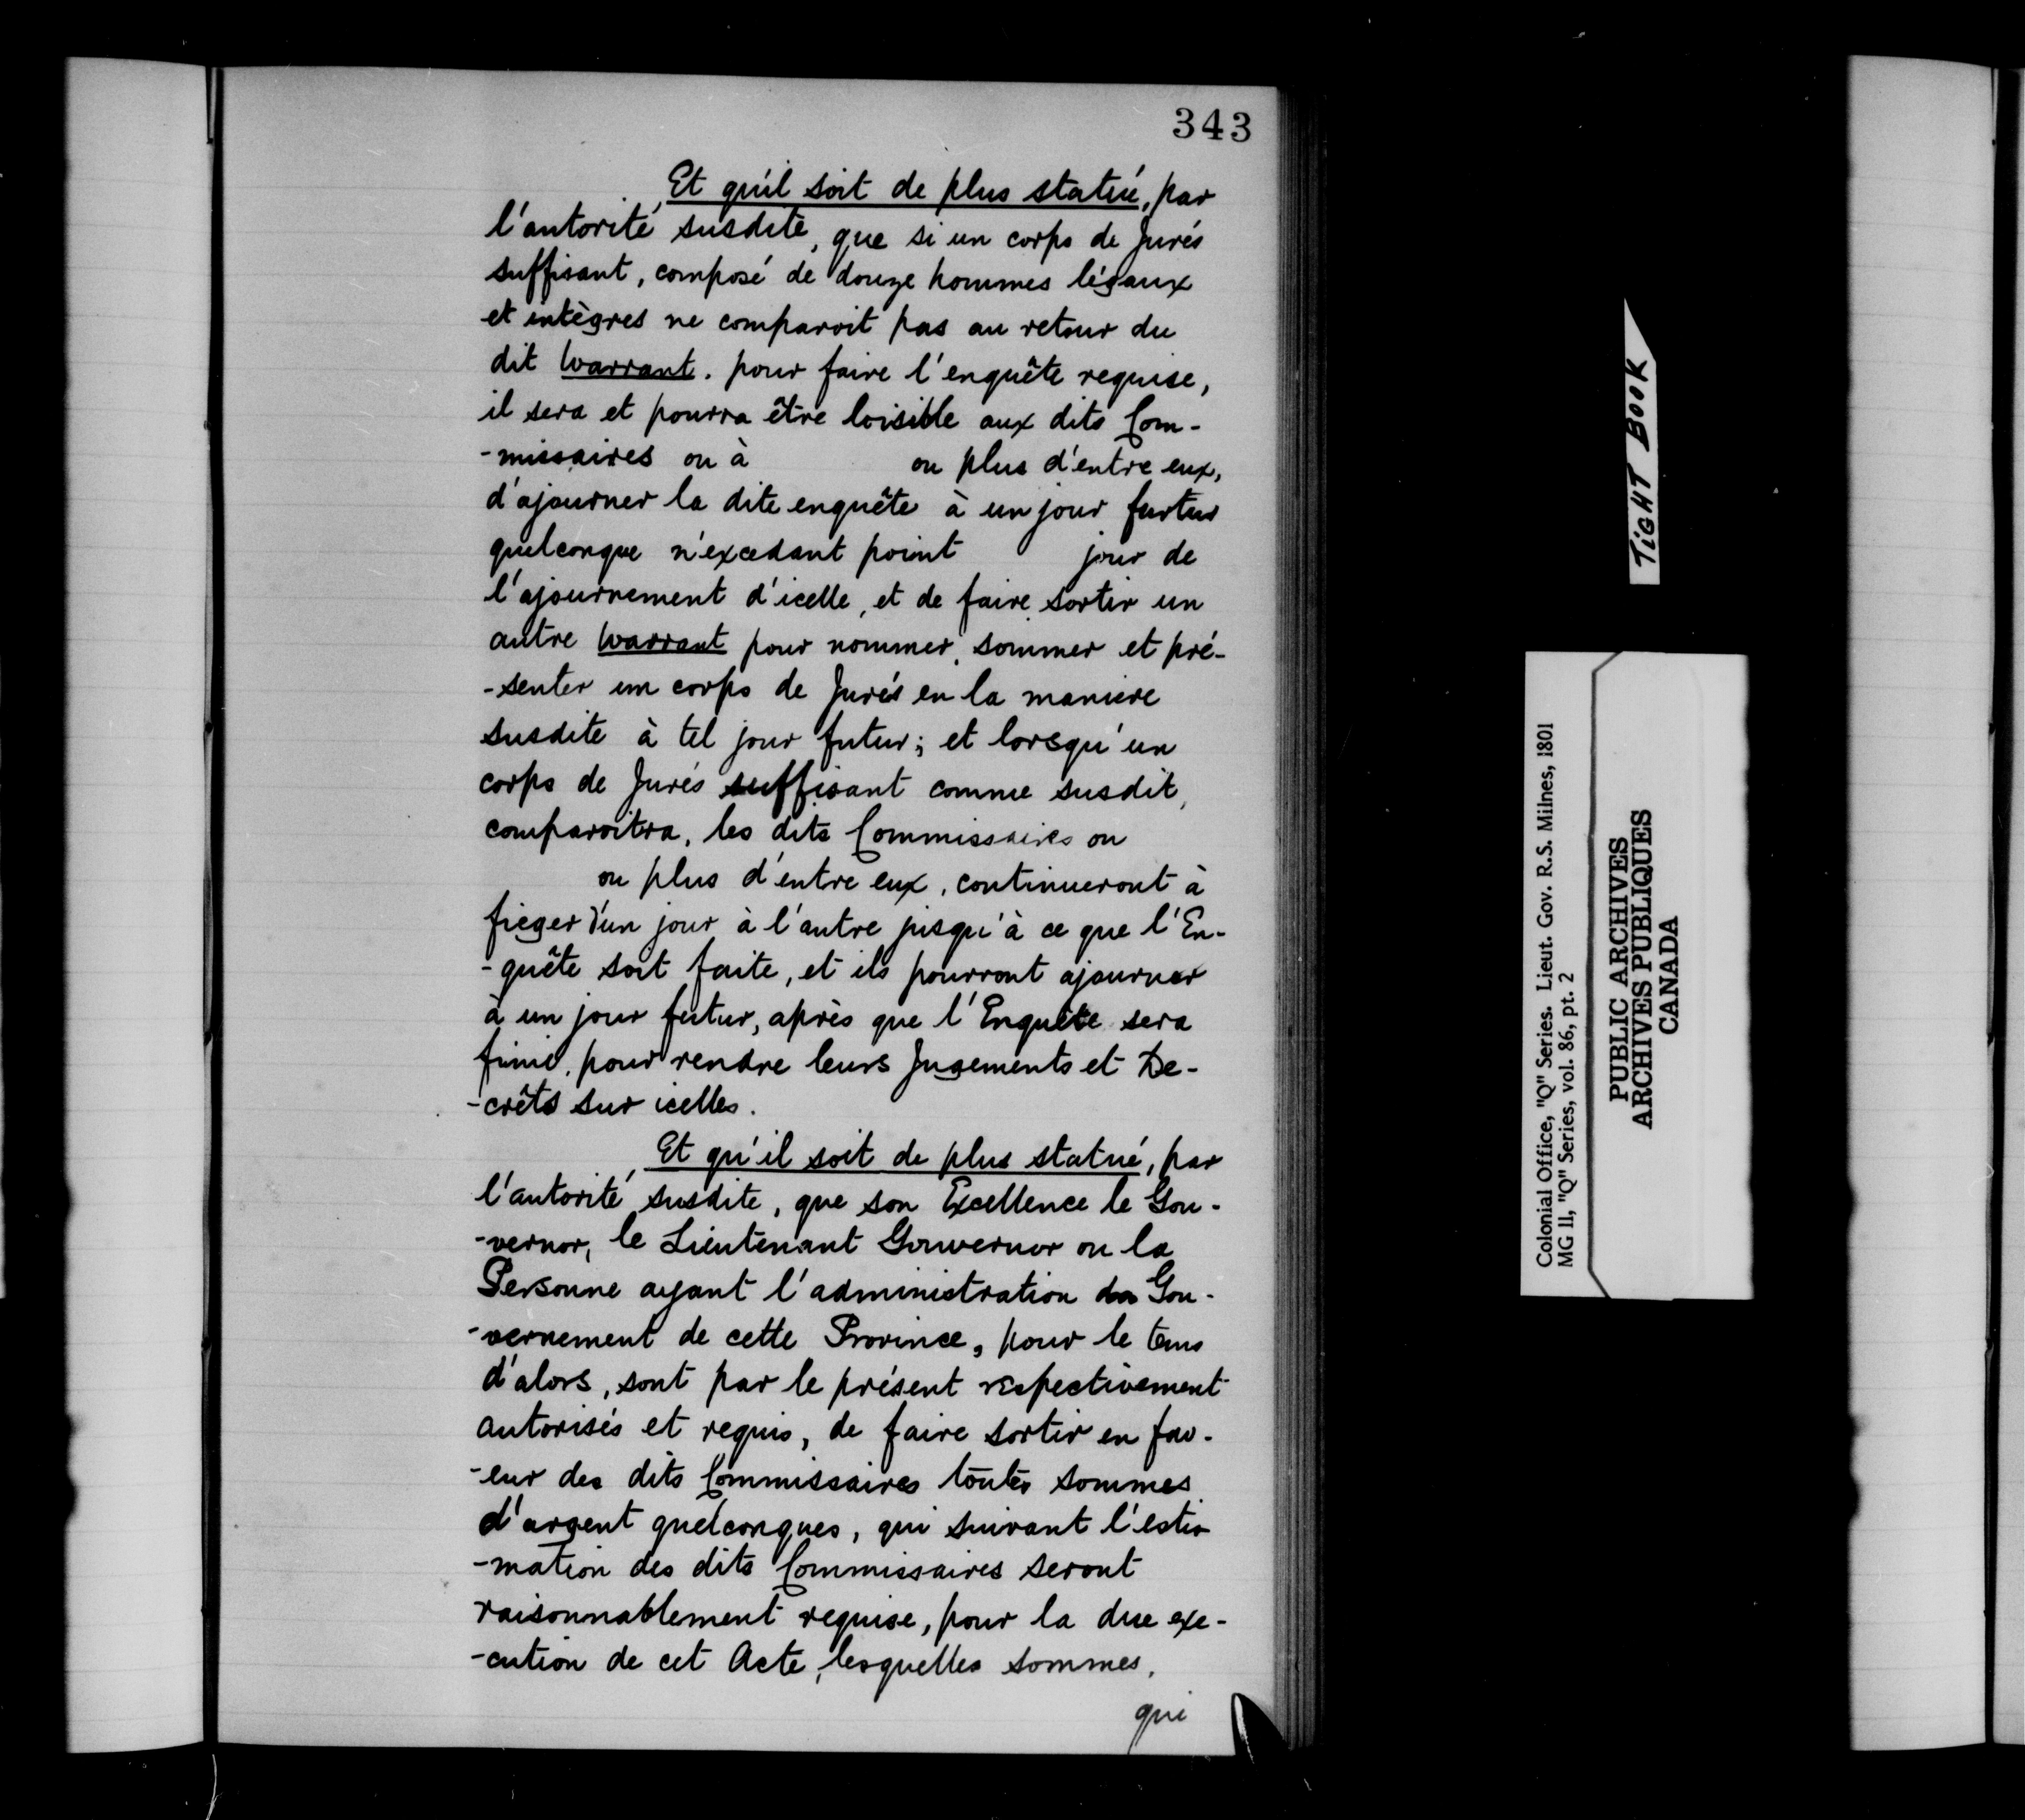 343
Et qu'il soit de plus statué, par
l'autorité susdite, que si un corps de Jurés
suffisant, composé de douze hommes légaux
et intègres ne comparoit pas au retour du
dit Warrant. pour faire l'enquête requise,
il sera et pourra être loisible aux dits Com-
-missaires ou à ou plus d'entre eux,
d'ajourner la dite enquête à un jour furtur
quelconque n'excedant point jour de
l'ajournement d'icelle, et de faire sortir un
autre Warrant pour nommer, sommer et pré-
-senter un corps de Jurés en la maniere
susdite à tel jour futur; et lorsqu'un
corps de Jurés suffisant comme susdit,
comparoitra, les dits Commissaires ou
ou plus d'entre eux, continueront à
fieger d'un jour à l'autre jusqu'à ce que l'En-
-quête soit faite, et ils pourront ajourner
à un jour futur, après que l'Enquête sera
finie, pour rendre leurs Jugements et De-
-crêts sur icelles.
Et qu'il soit de plus statué, par
l'autorité susdite, que son Excellence le Gou-
-vernor, le Lieutenant Gouvernor ou la
Personne ayant l'administration du Gou-
-vernement de cette Province, pour le tems
d'alors, sont par le présent respectivement
autorisés et requis, de faire sortir en fav-
-eur des dits Commissaires toutes sommes
d'argent quelconques, qui suivant l'esti-
-mation des dits Commissaires seront
raisonnablement requise, pour la due exe-
-cution de cet Acte, lesquelles sommes,
qui
TIGHT BOOK
Colonial Office, "Q" Series. Lieut. Gov. R.S. Milnes, 1801
MG 11, "Q" Series, vol. 86, pt. 2
PUBLIC ARCHIVES
ARCHIVES PUBLIQUES
CANADA